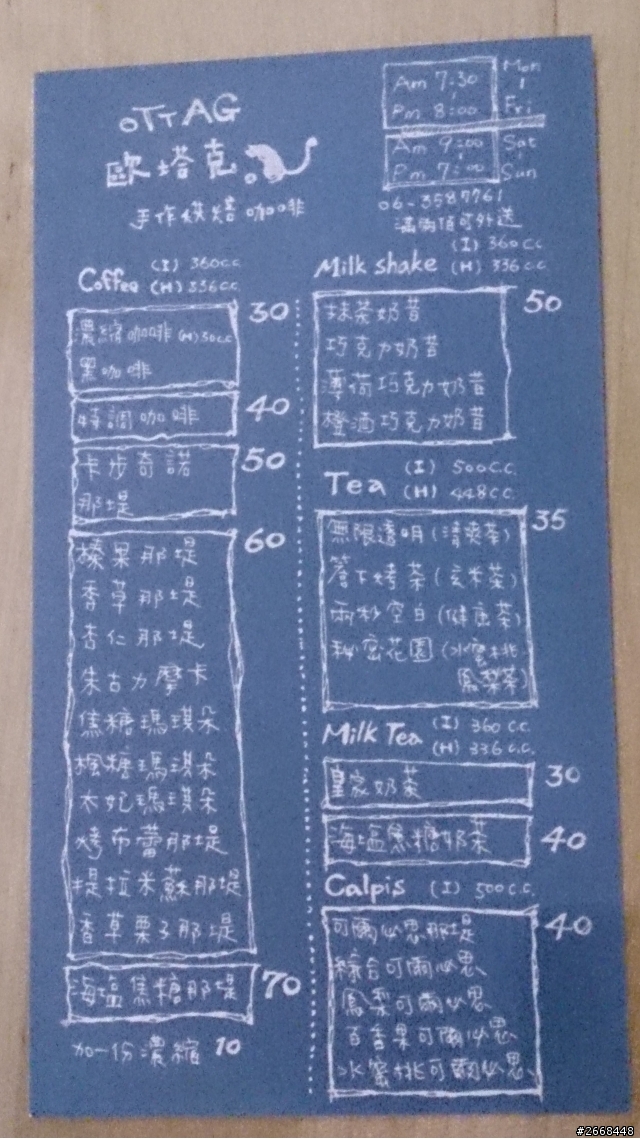 oTTAG
歐塔克
手作烘焙咖啡
Am 7:30
Pm 8:00
Mon
Fri
Am 9:00
Pm 7:00
Sat
Sun
06-3587761
滿兩佰可外送
Coffee (I) 360c.c.
(H) 336c.c.
30
濃縮咖啡 (H)30c.c.
黑咖啡
特調咖啡 40
卡步奇諾 50
那堤
60
榛果那堤
香草那堤
杏仁那堤
朱古力摩卡
焦糖瑪琪朵
楓糖瑪琪朵
太妃瑪琪朵
烤布蕾那堤
提拉米蘇那堤
香草栗子那堤
海塩焦糖那堤 70
加一份濃縮 10
Milk shake (I) 360c.c.
(H) 336c.c.
50
抹茶奶昔
巧克力奶昔
薄荷巧克力奶昔
橙酒巧克力奶昔
Tea (I) 500c.c.
(H) 448c.c.
35
無限透明(清爽茶)
簷下烤茶(玄米茶)
兩秒空白(健康茶)
秘密花園(水蜜桃
鳳梨茶)
Milk Tea (I) 360c.c.
(H) 336c.c.
皇家奶茶 30
海塩焦糖奶茶 40
Calpis (I) 500c.c.
40
可爾必思那堤
綜合可爾必思
鳳梨可爾必思
百香果可爾必思
水蜜桃可爾必思
#2668448